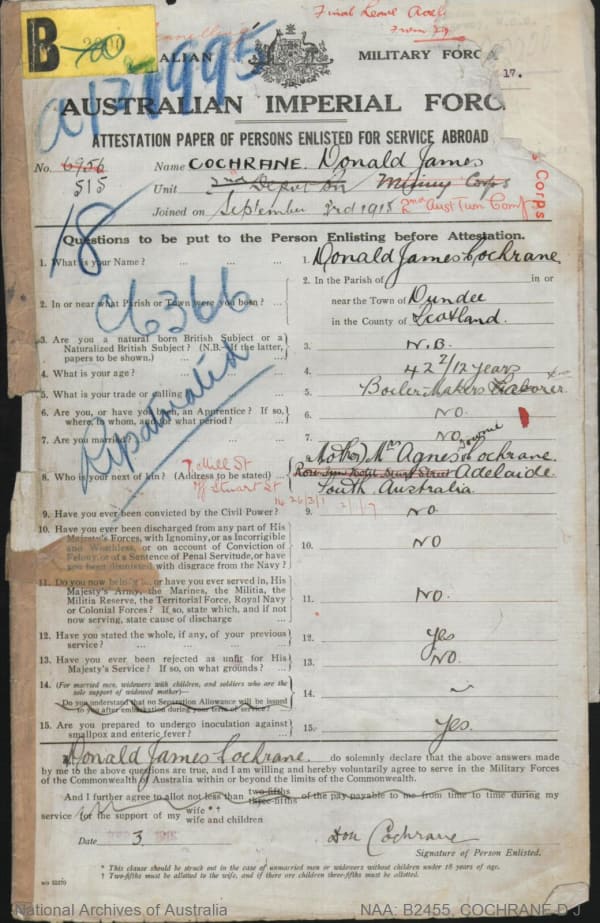 Final Leave
From
B
ALIAN MILITARY FORC
17.
AUSTRALIAN IMPERIAL FORC
ATTESTATION PAPER OF PERSONS ENLISTED FOR SERVICE ABROAD
No. 6956 Name COCHRANE Donald James
515 Unit 2nd Depot Bn Mining Corps
Joined on September 3rd 1918 2nd Aust Tun Comp
Corps
18
Questions to be put to the Person Enlisting before Attestation.
1. What is your Name? ... ... ... 1. Donald James Cochrane
2. In or near what Parish or Town were you born? ... 2. In the Parish of in or
near the Town of Dundee
in the County of Scotland.
C6366
3. Are you a natural born British Subject or a Naturalized British Subject? (N.B.—If the latter, papers to be shown.) ... 3. N.B.
4. What is your age? ... 4. 42 2/12 years
5. What is your trade or calling? 5. Boiler-Makers Laborer
6. Are you, or have you been, an Apprentice? If so, where, to whom, and for what period? ... 6. NO.
7. Are you married? ... 7. NO.
Repatriated
8. Who is your next of kin? (Address to be stated) ... 8. Mother Mrs Agnes Towne Cochrane
7 Mill St
off Stuart St Adelaide
South Australia
9. Have you ever been convicted by the Civil Power? 9. NO
10. Have you ever been discharged from any part of His Majesty's Forces, with Ignominy, or as Incorrigible and Worthless, or on account of Conviction of Felony, or of a Sentence of Penal Servitude, or have you been dismissed with disgrace from the Navy? 10. NO
11. Do you now belong to, or have you ever served in, His Majesty's Army, the Marines, the Militia, the Militia Reserve, the Territorial Force, Royal Navy or Colonial Forces? If so, state which, and if not now serving, state cause of discharge 11. NO.
12. Have you stated the whole, if any, of your previous service? ... 12. Yes
13. Have you ever been rejected as unfit for His Majesty's Service? If so, on what grounds? ... 13. NO.
14. (For married men, widowers with children, and soldiers who are the sole support of widowed mother)—
Do you understand that no Separation Allowance will be issued to you after embarkation during your term of service? 14.
15. Are you prepared to undergo inoculation against smallpox and enteric fever? 15. Yes.
I, Donald James Cochrane do solemnly declare that the above answers made
by me to the above questions are true, and I am willing and hereby voluntarily agree to serve in the Military Forces
of the Commonwealth of Australia within or beyond the limits of the Commonwealth.
And I further agree to allot not less than two-fifths three-fifths of the pay payable to me from time to time during my
service for the support of my wife*† wife and children
Date 3 Don Cochrane
Signature of Person Enlisted.
* This clause should be struck out in the case of unmarried men or widowers without children under 18 years of age.
† Two-fifths must be allotted to the wife, and if there are children three-fifths must be allotted.
National Archives of Australia NAA: B2455, COCHRANE D J